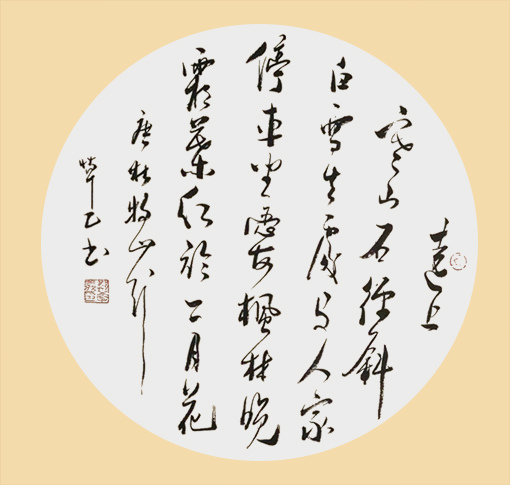 遠上
寒山石徑斜
白雲生處有人家
停車坐愛楓林晚
霜葉紅於二月花
唐杜牧山行
書